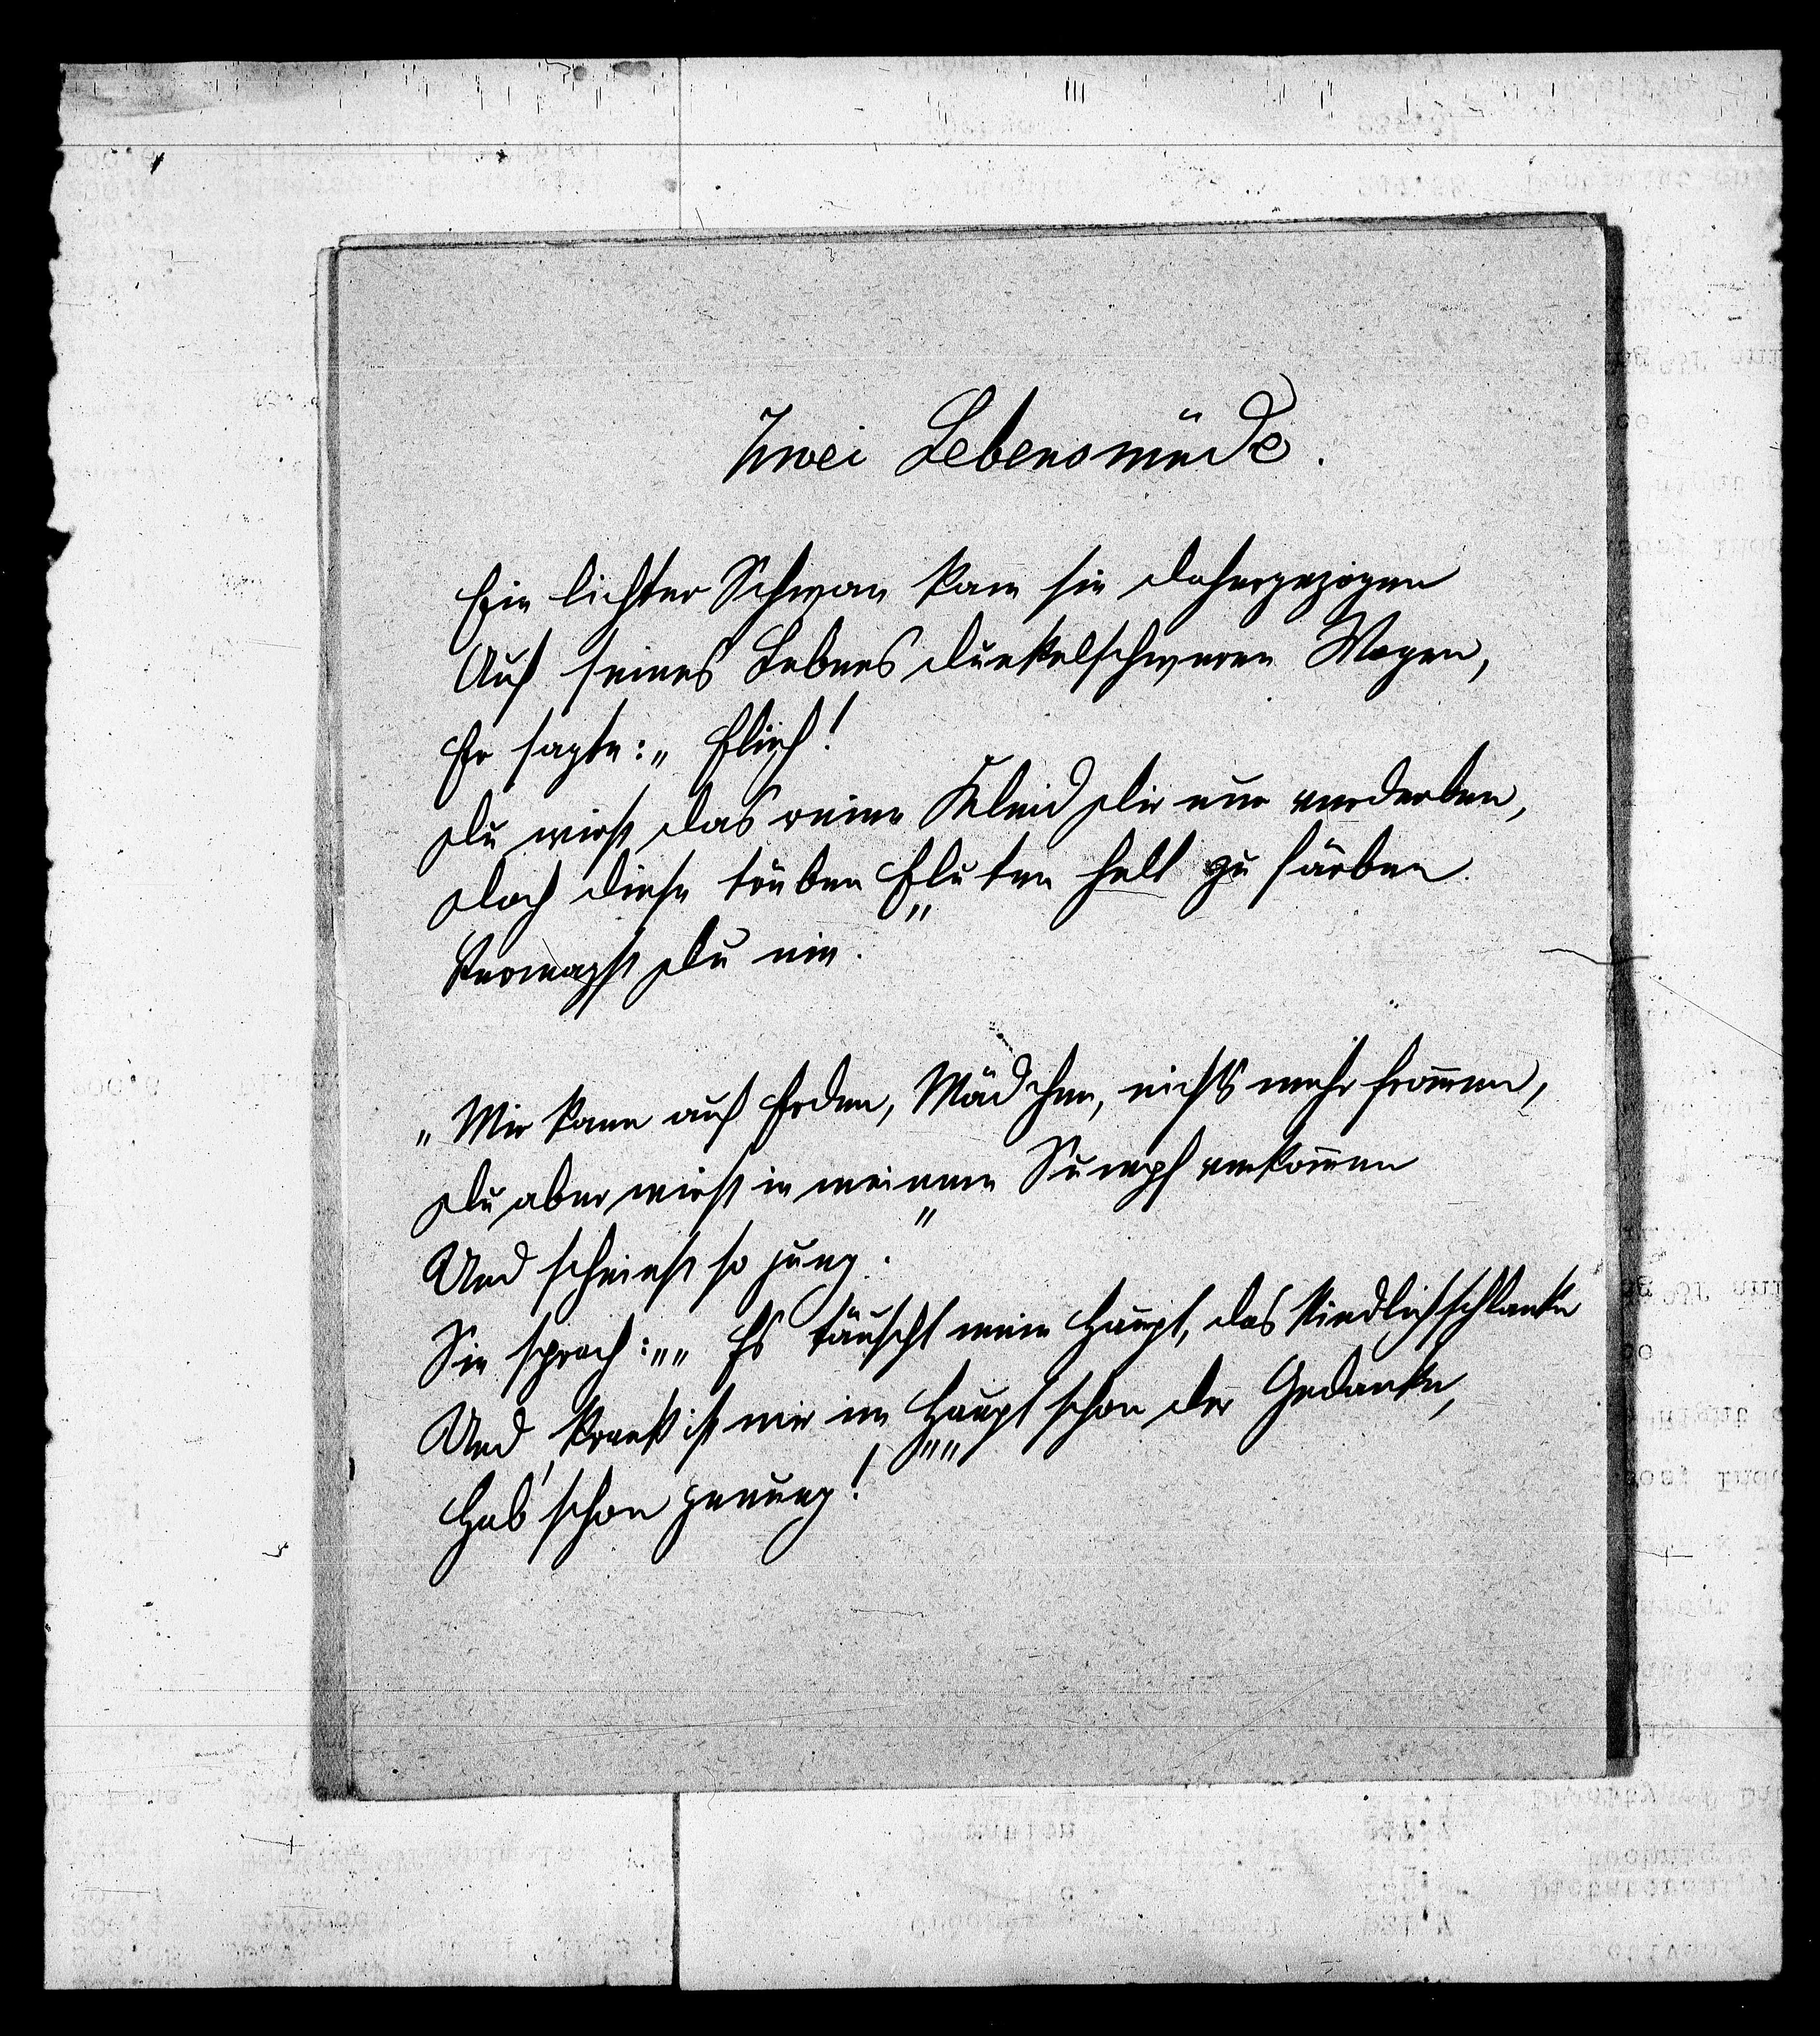 Zwei Lebensmüde.
Ein lichter Schwan kam sie dahergezogen
Auf seines Lebens dunkelschweren Wogen,
Er sagte: „Flieh!
Du wirst das reine Kleid Dir nur verderben,
Doch diese trüben Fluten hell zu färben
Vermagst Du nie."
„Mir kann auf Erden, Mädchen, nichts mehr from̅en,
Du aber wirst in meinem Sumpf verkom̅en
Und scheinst so jung."
Sie sprach: „„Es täuscht mein Haupt, das kindlichschlanke
Und krank ist mir im Haupt schon der Gedanke,
Hab' schon genung!""